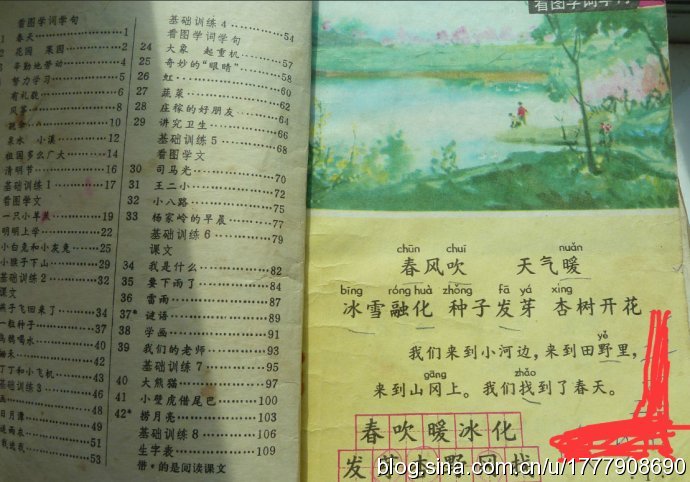 看图学词学句
春天 1
2 花园 果园 2
3 辛勤地劳动 4
努力学习 5
有礼貌 6
风筝 8
10
泉水 小溪 12
祖国多么广大 14
清明节 16
基础训练1 17
看图学文
一只小羊羔 19
明明上学 22
小白兔和小灰兔 25
小猴子下山 29
基础训练2 32
课文
燕子飞回来了 34
一粒种子 37
乌鸦喝水 40
42
丁丁和小飞机 43
基础训练3 46
画 48
日月潭 49
51
53
基础训练4 54
看图学词学句
24 大象 起重机 57
25 奇妙的“眼睛” 58
26 虹 60
27 蔬菜 62
28 庄稼的好朋友 64
29 讲究卫生 66
基础训练5 68
看图学文
30 司马光 70
31 王二小 72
32 小八路 75
33 杨家岭的早晨 77
基础训练6 79
课文
34 我是什么 82
35 要下雨了 84
36 雷雨 87
37* 谜语 89
38 学画 91
39 我们的老师 93
基础训练7 95
40 大熊猫 97
41 小壁虎借尾巴 100
42* 捞月亮 103
基础训练8 106
生字表 109
带*的是阅读课文
看图学词学句
chūn chuī nuǎn
春风吹 天气暖
bīng róng huà zhǒng fā yá xìng
冰雪融化 种子发芽 杏树开花
yě
我们来到小河边，来到田野里，
gāng zhǎo
来到山冈上。我们找到了春天。
春吹暖冰化
发芽杏野冈找
blog.sina.com.cn/u/1777908690